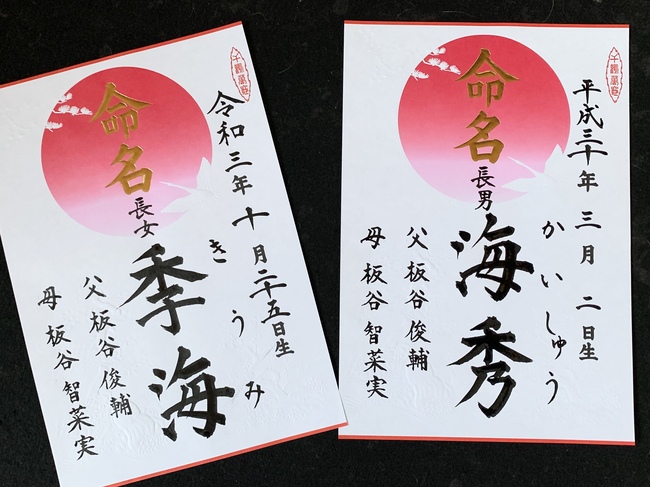 平成三十年 三月 二日生
かいしゅう
命名
長男
海秀
父 板谷 俊輔
母 板谷 智菜実
令和三年 十月二十五日生
きうみ
命名
長女
季海
父 板谷 俊輔
母 板谷 智菜実